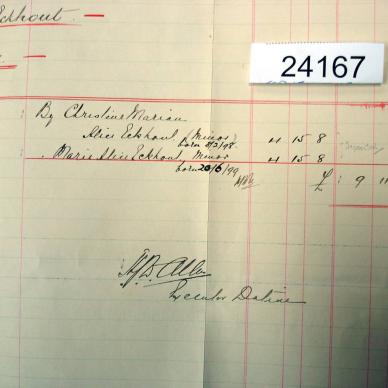 Eckhout.
24167
By Christina Marian
Alice Eckhout (Minor)
born 8/2/98.
4 15 8
Maria Alice Eckhout, Minor
born 20/6/99
4 15 8
£ 9 11
Allen
Executor Dative